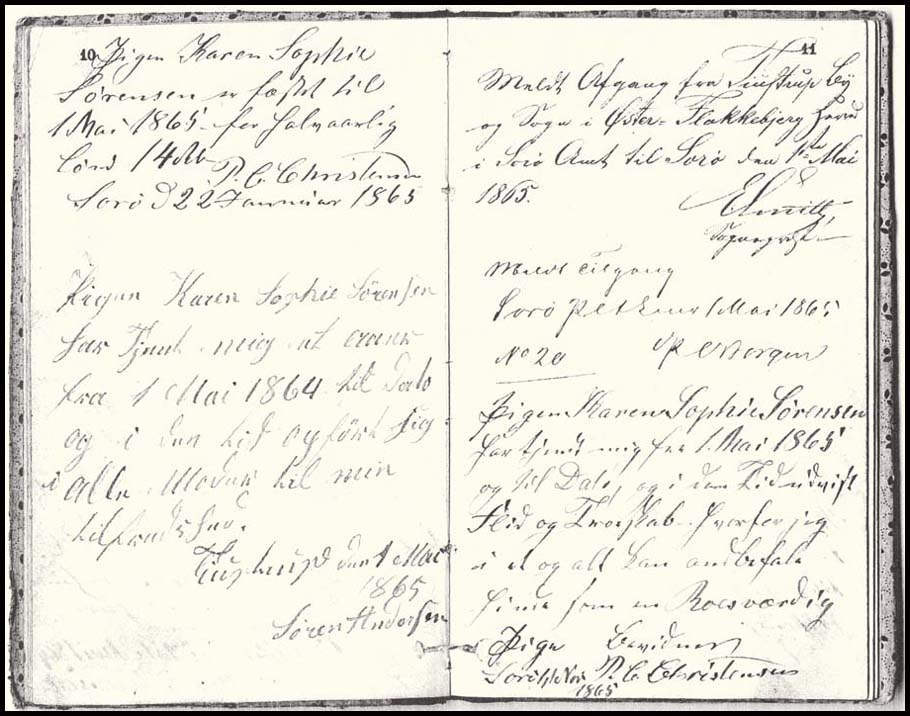 10
Pigen Karen Sophie
Sørensen er fæstet til
1 Mai 1865 for halvaarlig
Lønd 14 Rd
P. C. Christensen
Sorø d 22 Januuar 1865
Pigen Karen Sophie Sørensen
har Tjent mig et
fra 1 Mai 1864 til Dato
og i den tid opført sig
i alle Moder til min
tilfredshed.
Tiustrup den 1 Mai
1865
Søren Andersen
11
Meldt Afgang fra Tiustrup By
og Sogn i Øster-Flakkebjerg Herred
i Sorø Amt til Sorø den 1ste Mai
1865.
Sognefoged
Meldt Tilgang
Sorø 1 Mai 1865
No 20
Pigen Karen Sophie Sørensen
har tjent mig fra 1. Mai 1865
og til Dato, og i den Tid udvist
Flid og Troskab hvorfor jeg
i et og alt kan andbefale
hinde som en Roesværdig
Pige Bevidnes
Sorø Nov P. C. Christensen
1865